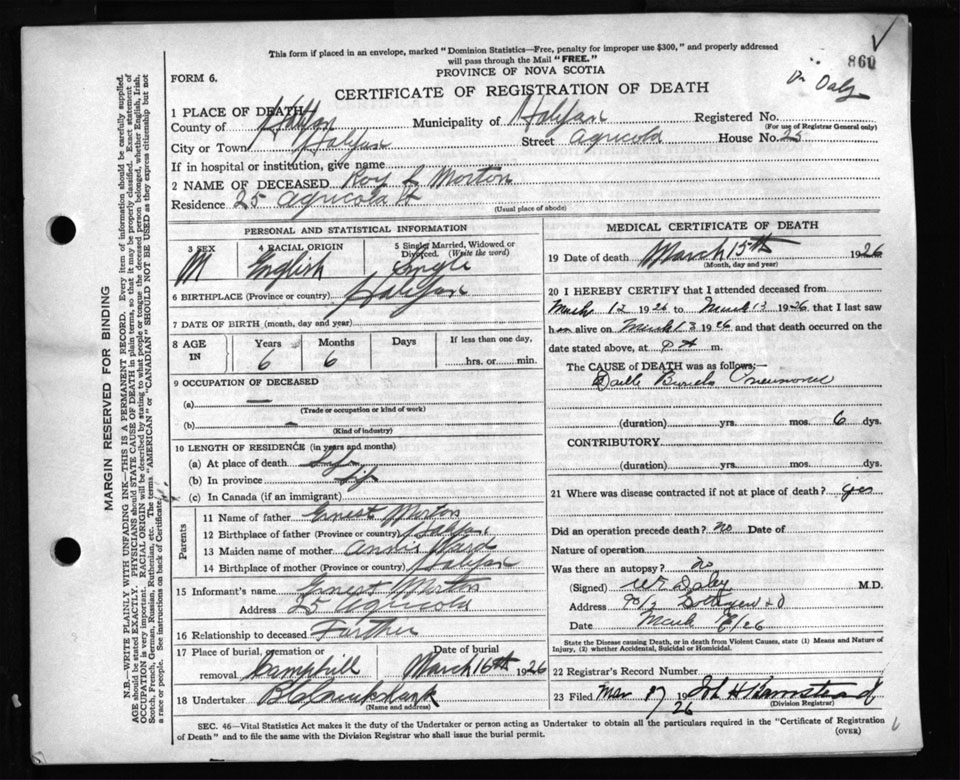 This form if placed in an envelope, marked "Dominion Statistics—Free, penalty for improper use $300," and properly addressed
will pass through the Mail "FREE."
860
Dr Daley
FORM 6.
PROVINCE OF NOVA SCOTIA
CERTIFICATE OF REGISTRATION OF DEATH
1 PLACE OF DEATH
County of Halifax Municipality of Halifax Registered No.
(For use of Registrar General only)
City or Town Halifax Street Agricola House No. 25
If in hospital or institution, give name
2 NAME OF DECEASED Roy L Morton
Residence 25 Agricola St
(Usual place of abode)
PERSONAL AND STATISTICAL INFORMATION
3 SEX 4 RACIAL ORIGIN 5 Single, Married, Widowed or Divorced. (Write the word)
M English Single
6 BIRTHPLACE (Province or country) Halifax
7 DATE OF BIRTH (month, day and year)
8 AGE IN Years Months Days If less than one day,
6 6 hrs. or min.
9 OCCUPATION OF DECEASED
(a) —
(Trade or occupation or kind of work)
(b) —
(Kind of industry)
10 LENGTH OF RESIDENCE (in years and months)
(a) At place of death Life
(b) In province Life
(c) In Canada (if an immigrant)
Parents
11 Name of father Ernest Morton
12 Birthplace of father (Province or country) Halifax
13 Maiden name of mother Annie
14 Birthplace of mother (Province or country) Halifax
15 Informant's name Ernest Morton
Address 25 Agricola
16 Relationship to deceased Farther
17 Place of burial, cremation or removal Date of burial
Camphill March 16th 1926
18 Undertaker
(Name and address)
MEDICAL CERTIFICATE OF DEATH
19 Date of death March 15th 1926
(Month, day and year)
20 I HEREBY CERTIFY that I attended deceased from
March 12 1926 to March 13 1926 that I last saw
him alive on March 13 1926 and that death occurred on
the date stated above, at m.
The CAUSE of DEATH was as follows:—
Pneumonia
(duration) yrs. mos. 6 dys.
CONTRIBUTORY
(duration) yrs. mos. dys.
21 Where was disease contracted if not at place of death? yes
Did an operation precede death? no Date of
Nature of operation
Was there an autopsy? no
(Signed) W E Daley M.D.
Address
Date March /26
State the Disease causing Death, or in death from Violent Causes, state (1) Means and Nature of
Injury, (2) whether Accidental, Suicidal or Homicidal.
22 Registrar's Record Number
23 Filed Mar 17 1926 Joh H Barnstead
(Division Registrar)
SEC. 46—Vital Statistics Act makes it the duty of the Undertaker or person acting as Undertaker to obtain all the particulars required in the "Certificate of Registration
of Death" and to file the same with the Division Registrar who shall issue the burial permit.
(OVER)
MARGIN RESERVED FOR BINDING
N.B.—WRITE PLAINLY WITH UNFADING INK—THIS IS A PERMANENT RECORD. Every item of information should be carefully supplied.
AGE should be stated EXACTLY. PHYSICIANS should STATE CAUSE OF DEATH in plain terms, so that it may be properly classified. Exact statement of
OCCUPATION is very important. RACIAL ORIGIN will be described by stating to what people or tongue the deceased person belonged, whether English, Irish,
Scotch, French, German, Russian, Ruthenian, etc. The terms "AMERICAN" or "CANADIAN" SHOULD NOT BE USED as they express citizenship but not
a race or people. See instructions on back of Certificate.